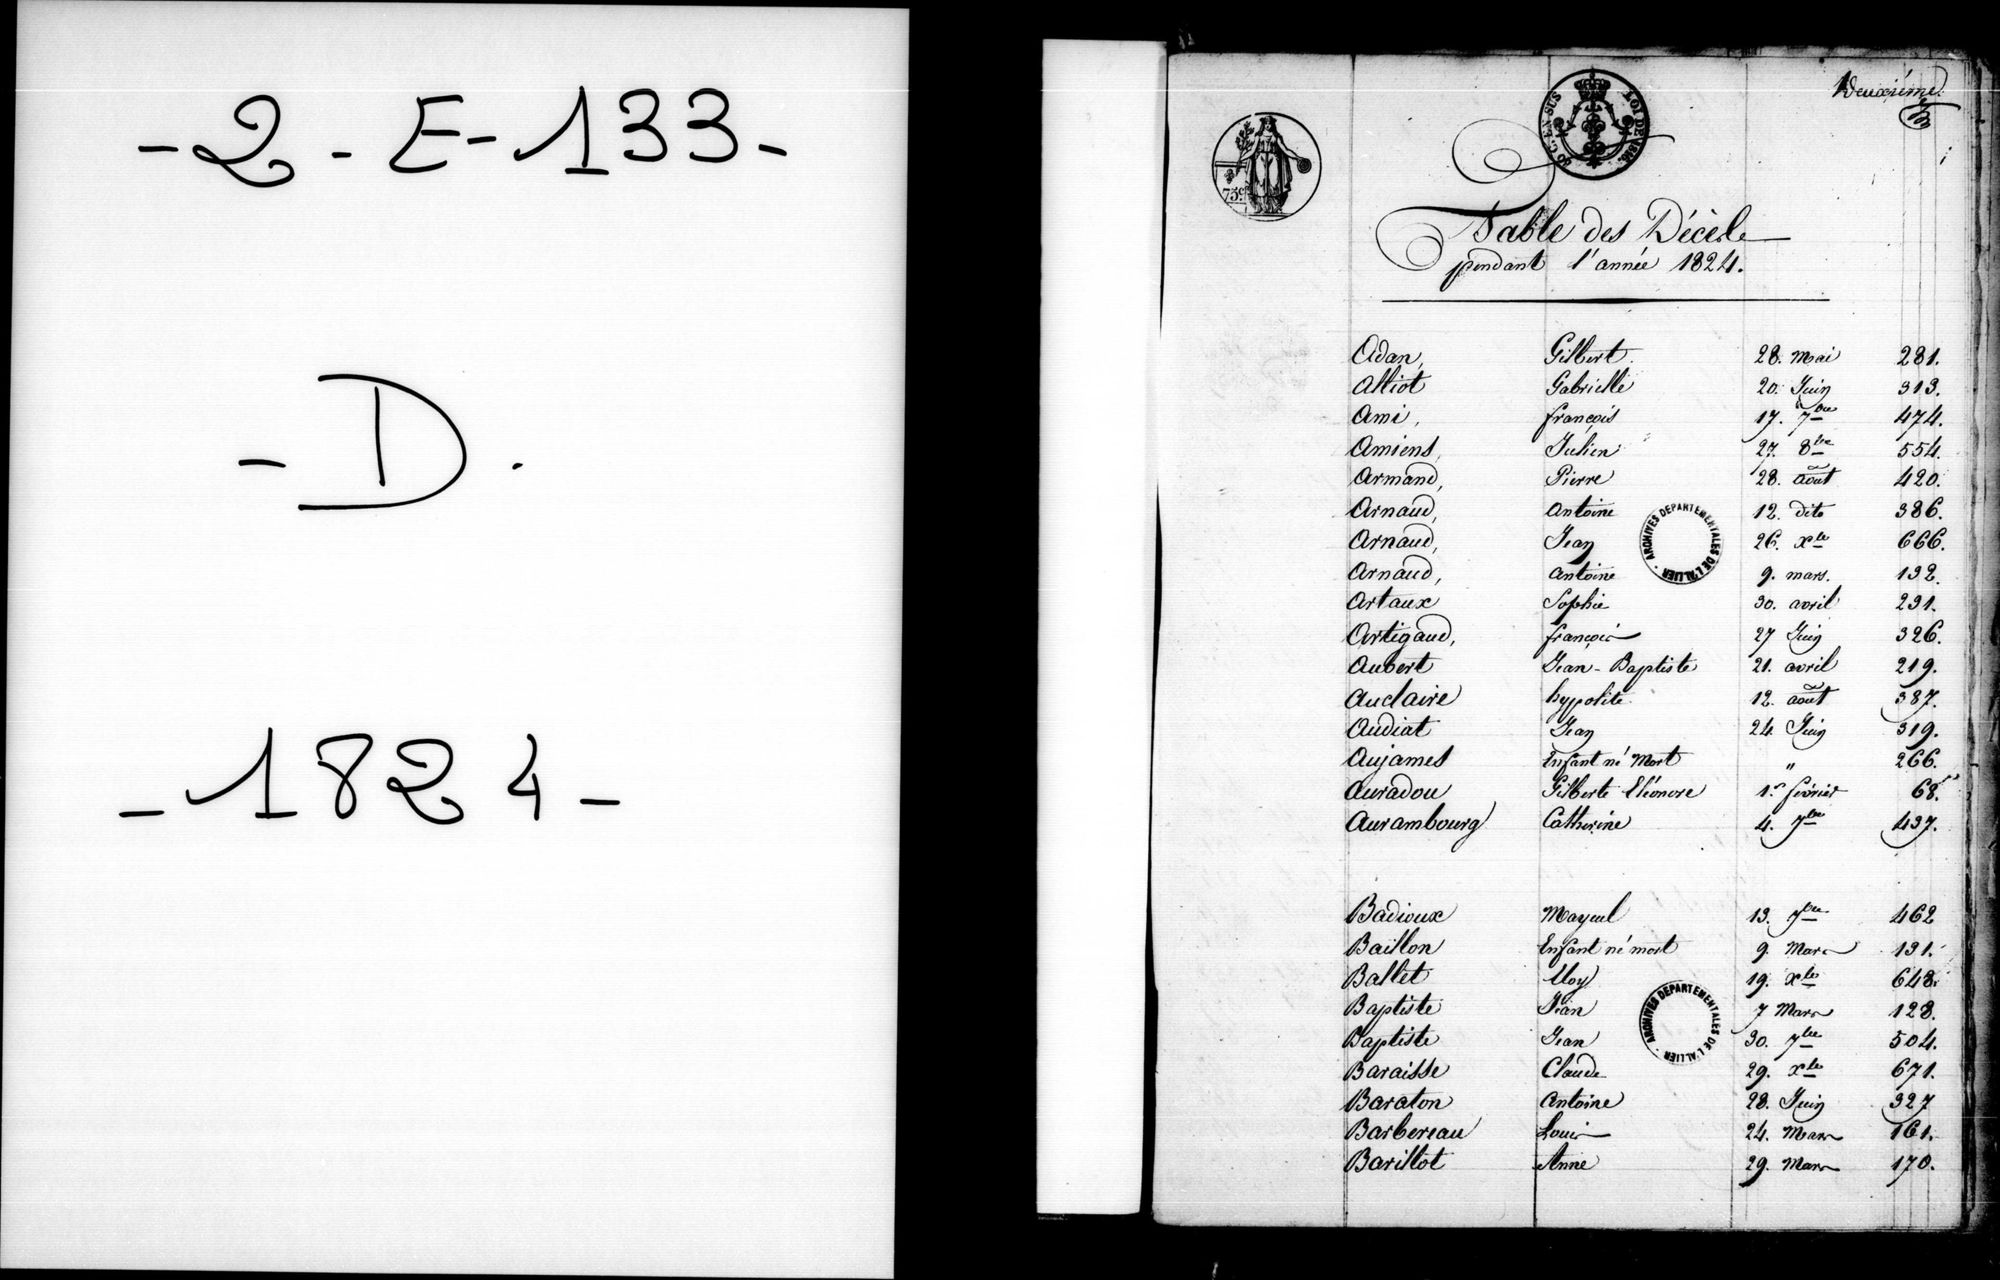 - 2 - E - 133 -
- D .
- 1824 -
Deuxième
75 c.
50 C. EN SUS LOI DE 1816.
Table des Décès
pendant l'année 1824.
Adan, Gilbert. 28. Mai 281.
Alliot Gabrielle 20. Juin 313.
Ami, françois 17. 7bre 474.
Amiens, Julien 27. 8bre 554.
Armand, Pierre 28. août 420.
Arnaud, Antoine 12. dito 386.
Arnaud, Jean 26. Xbre 666.
Arnaud, Antoine 9. mars. 132.
Artaux Sophie 30. avril 231.
Artigaud, françois 27 Juin 326.
Aubert Jean-Baptiste 21. avril 219.
Auclaire hypolite 12. août 387.
Audiat Jean 24 Juin 319.
Aujames Enfant né Mort " 266.
Auradou Gilberte Eléonore 1er février 68.
Aurambourg Catherine 4. 7bre 437.
Badioux Mayeul 13. 7bre 462
Baillon Enfant né mort 9. Mars 131.
Ballet Eloy 19. Xbre 648.
Baptiste Jean 7 Mars 128.
Baptiste Jean 30. 7bre 504.
Baraisse Claude 29. Xbre 671.
Baraton Antoine 28. Juin 327
Barbereau Louis 24. Mars 161.
Barillot Anne 29. Mars 170.
ARCHIVES DEPARTEMENTALES DE L'ALLIER
ARCHIVES DEPARTEMENTALES DE L'ALLIER